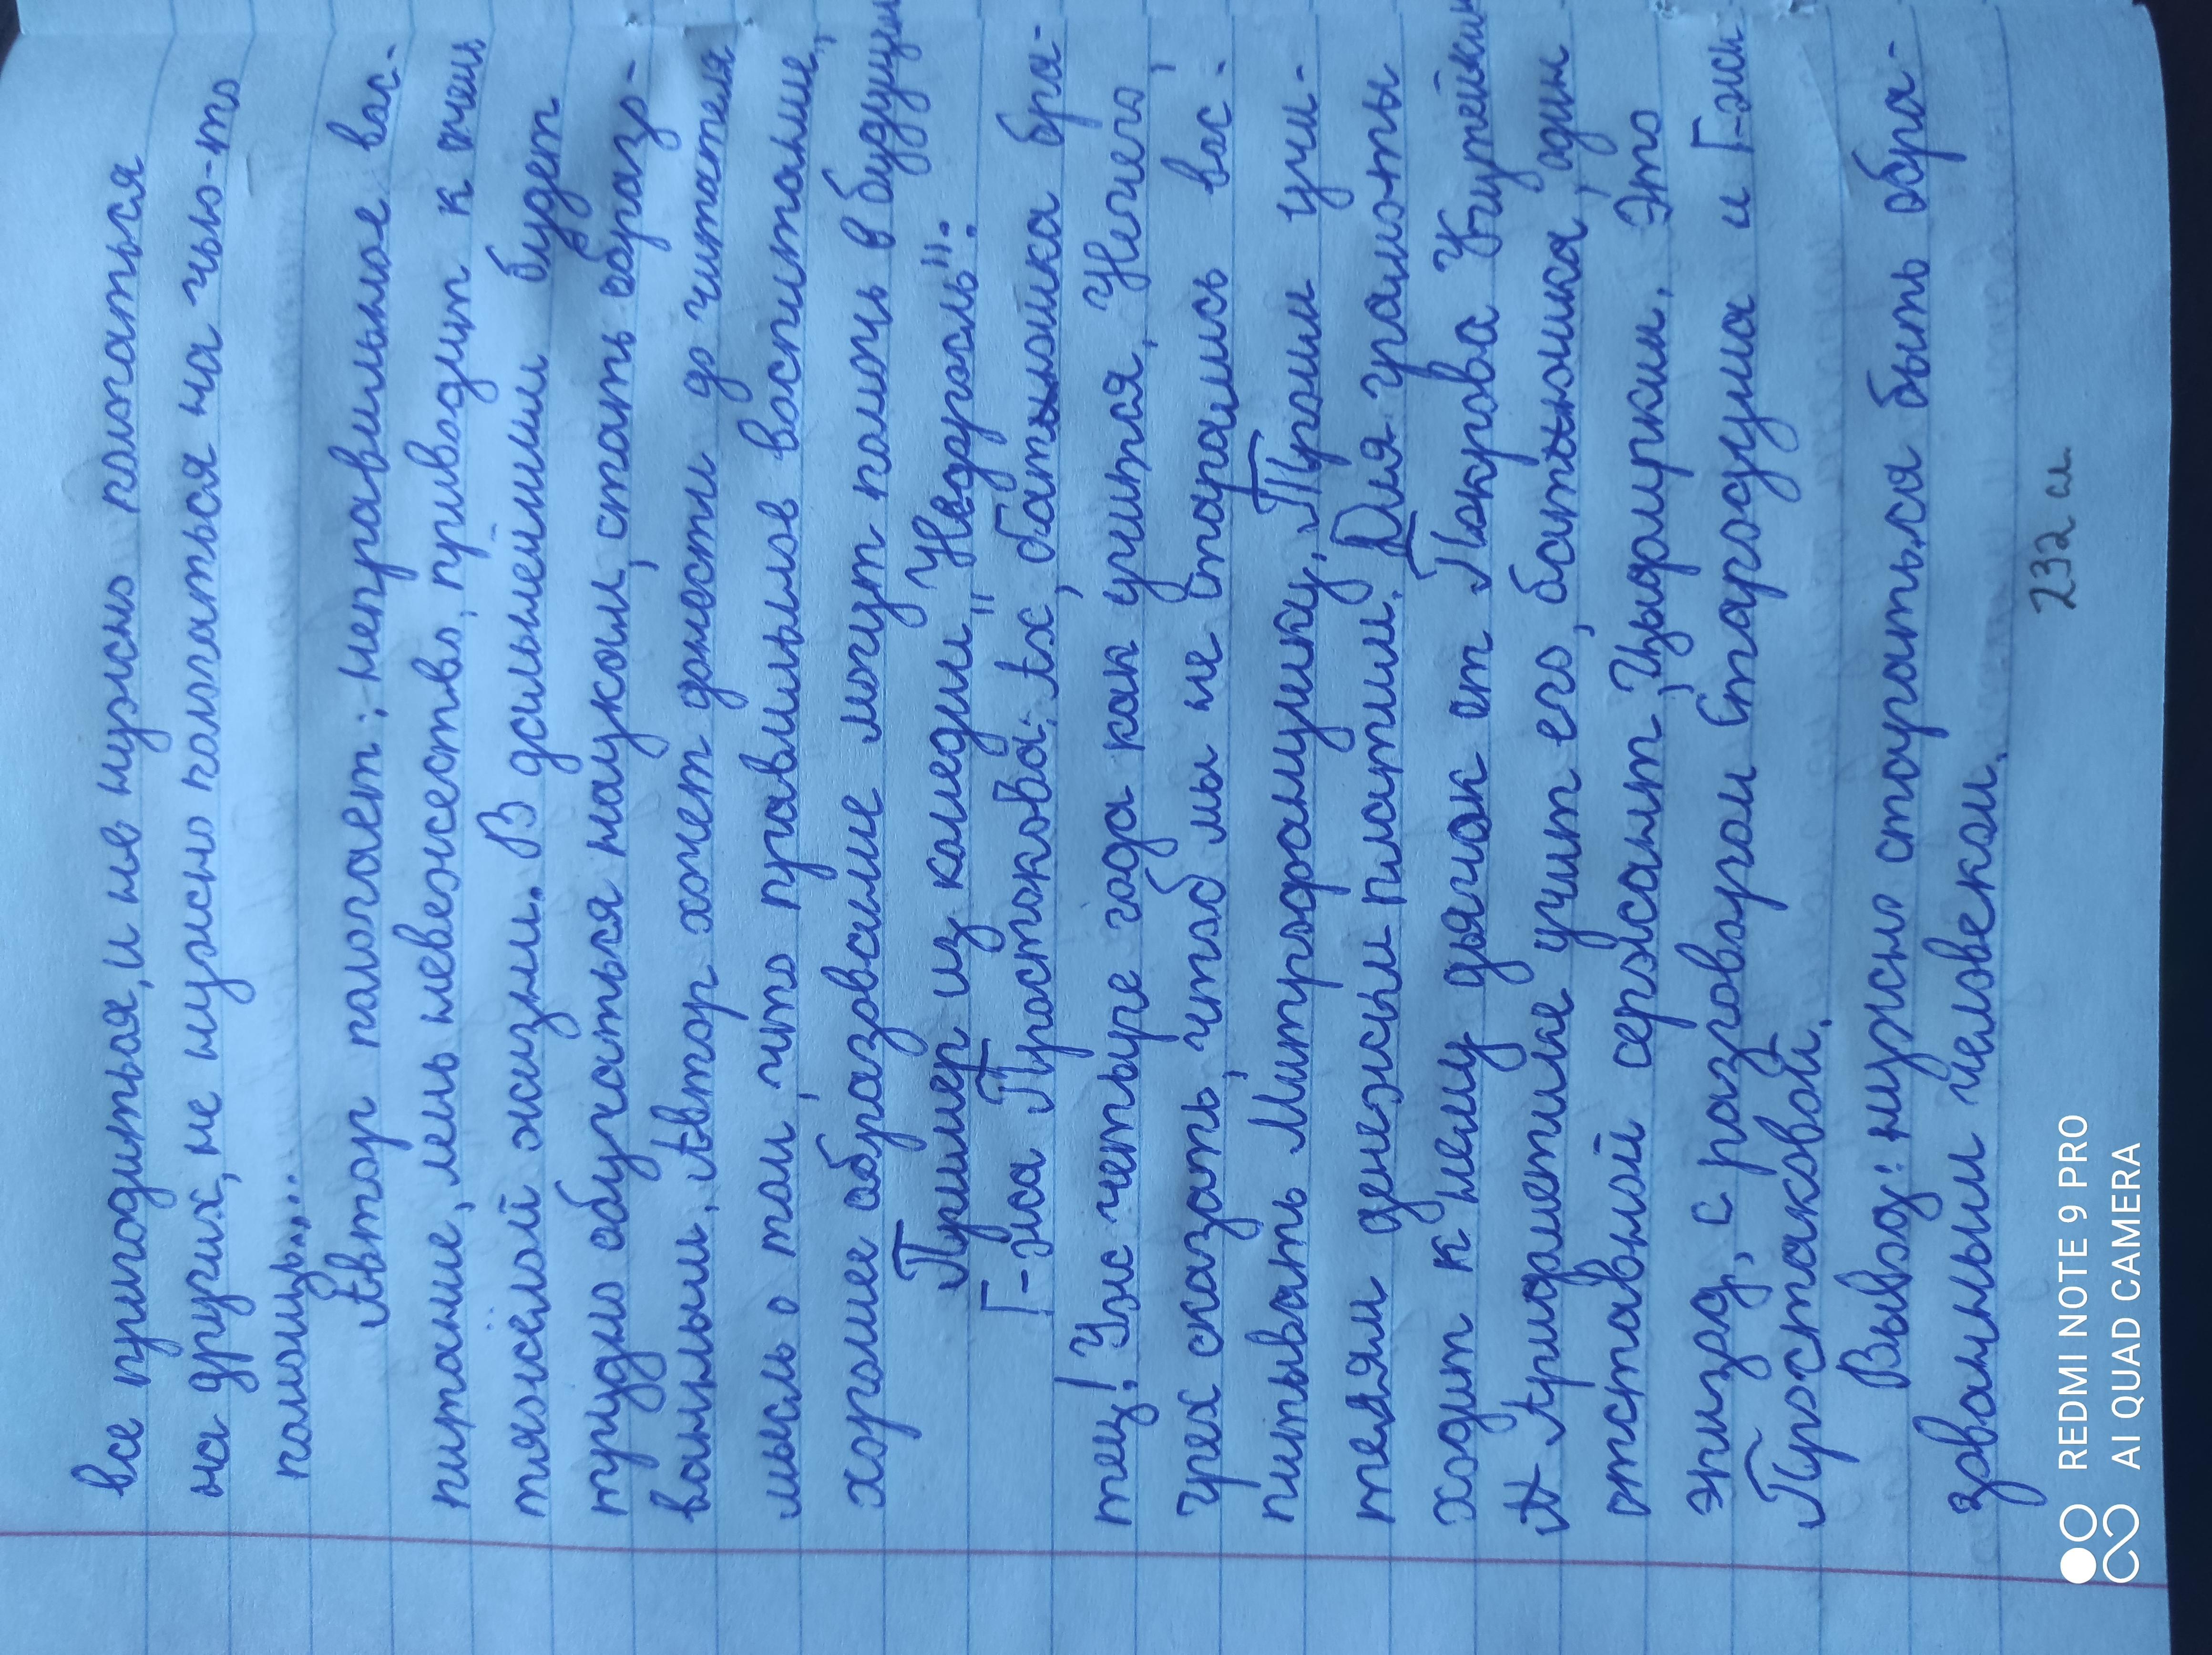 все пригодиться, и не нужно пологаться
на других, не нужно пологаться на чью-то
помощь...
Автор пологает: неправильное вос-
питание, лень невежество, приводит к очень
тяжёлой жизни. В дальнейшим будет
трудно обучаться наукам, стать образ-
ванным. Автор хочет донести до читателя
мысль о том, что правильное воспитание,
хорошее образование могут помочь в будущем
Пример из комедии "Недоросль":
Г-жа Простокова: Ах, батюшка бра-
тец! Уж четыре года как учится. Нечего,
грех сказать, чтоб мы не старались вос-
питывать Митрофанушку. Троим учи-
телям денежки платим. Для грамоты
ходит к нему дьячок от Покрова Кутейкин
А Арифметике учит его, батюшка, один
отставной сержант, Цыфиркин. Это
эпизод, с разговором Стародума и Г-жи
Простаковой.
Вывод: нужно стараться быть обра-
зованным человеком.
232 сл.
REDMI NOTE 9 PRO
AI QUAD CAMERA